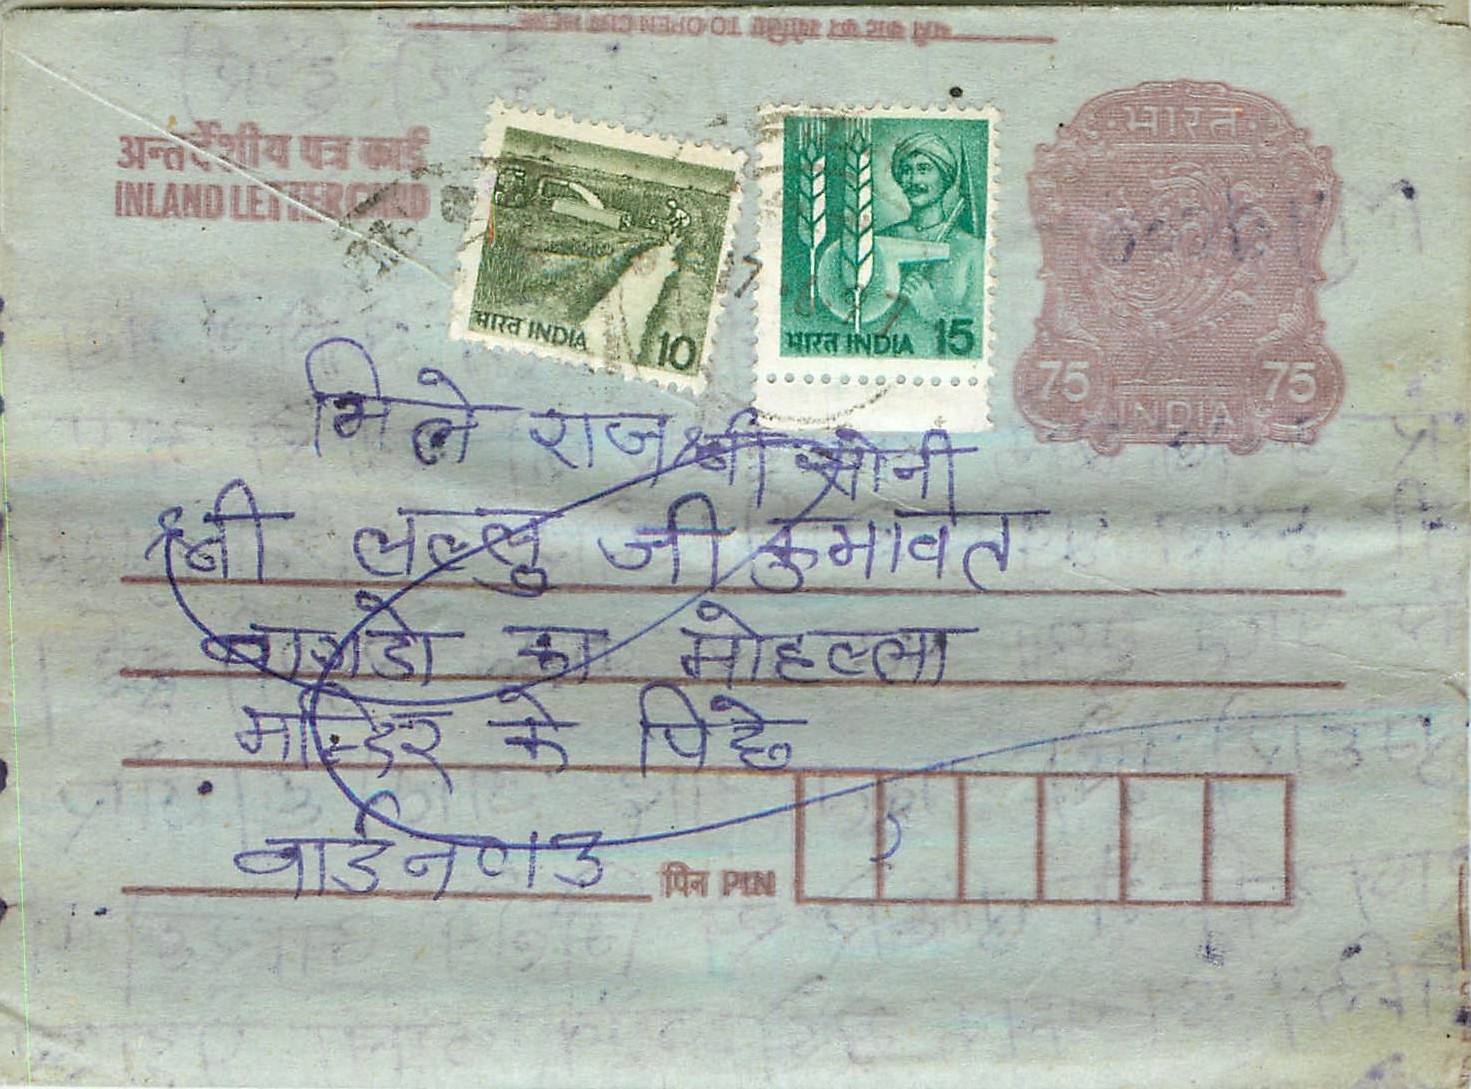 यहाँ काट कर खोलिए TO OPEN CUT HERE
अन्तर्देशीय पत्र कार्ड
INLAND LETTER CARD
भारत
75 INDIA 75
भारत INDIA 10
भारत INDIA 15
मिले राजश्री सोनी
श्री लल्लु जी कुमावत
का मोहल्ला
मन्दिर के पिछे
वार्ड न०
पिन PIN